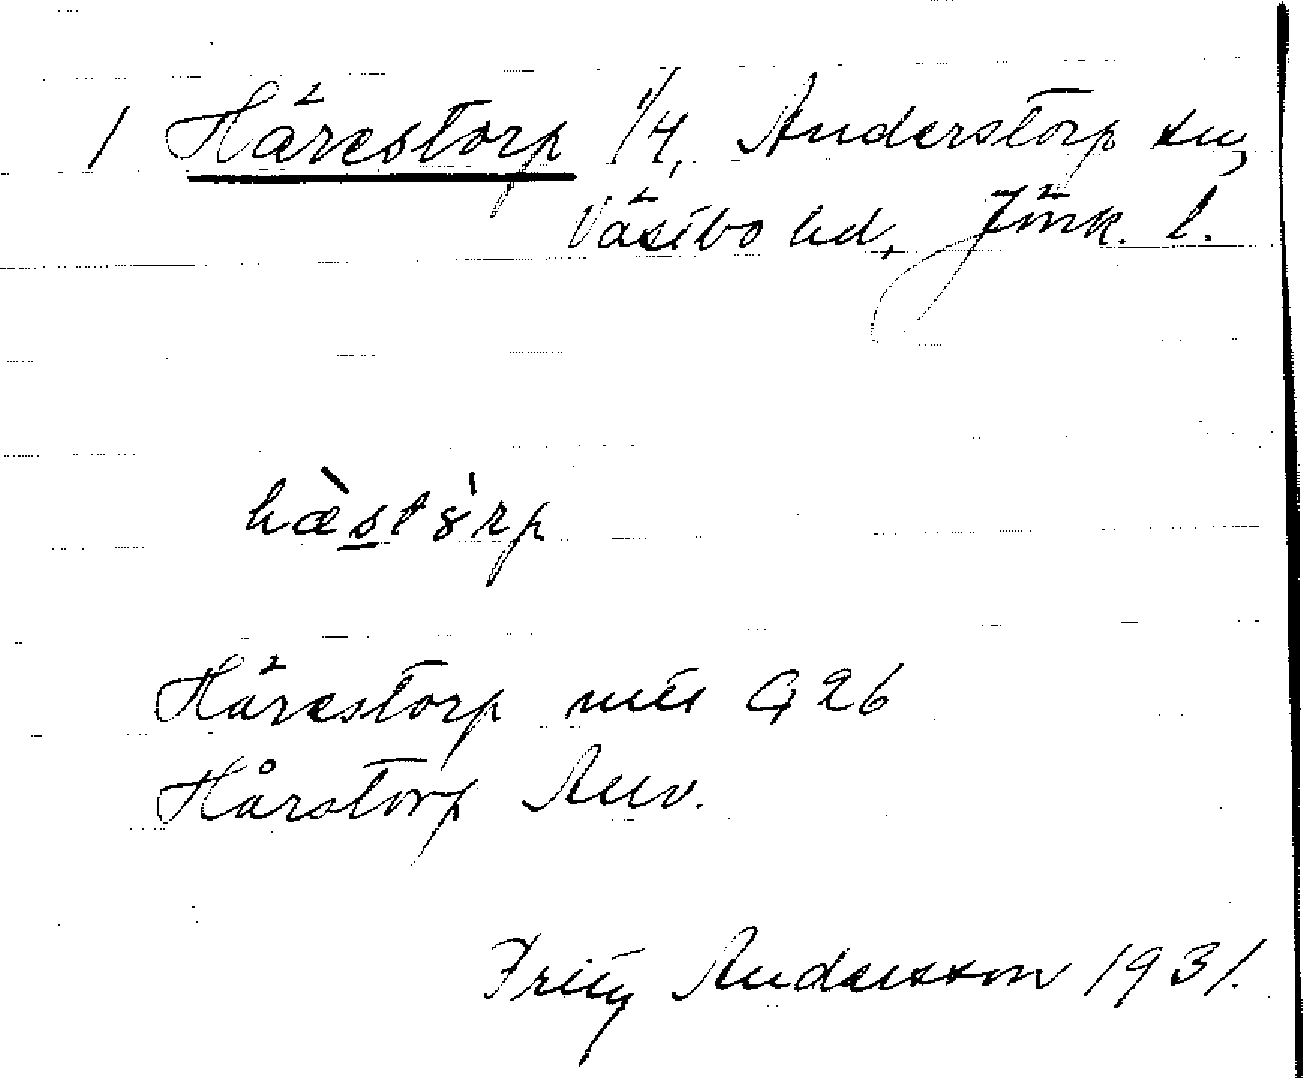 1 Härestorp 1/4, Anderstorp sn,
Västbo hd, Jönk. l.
hæ̀stȣ̀rp
Härestorp
Hårstorp
Fritz Andersson 1931.